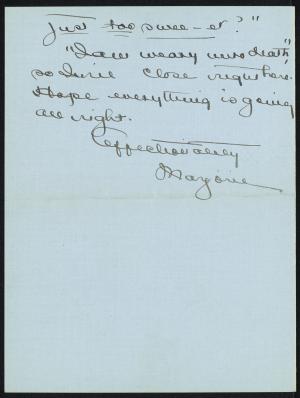 Just too swee-et?"
"I am weary unto death",
so I will close right here.
Hope everything is going
all right.
Affectionately
Marjorie